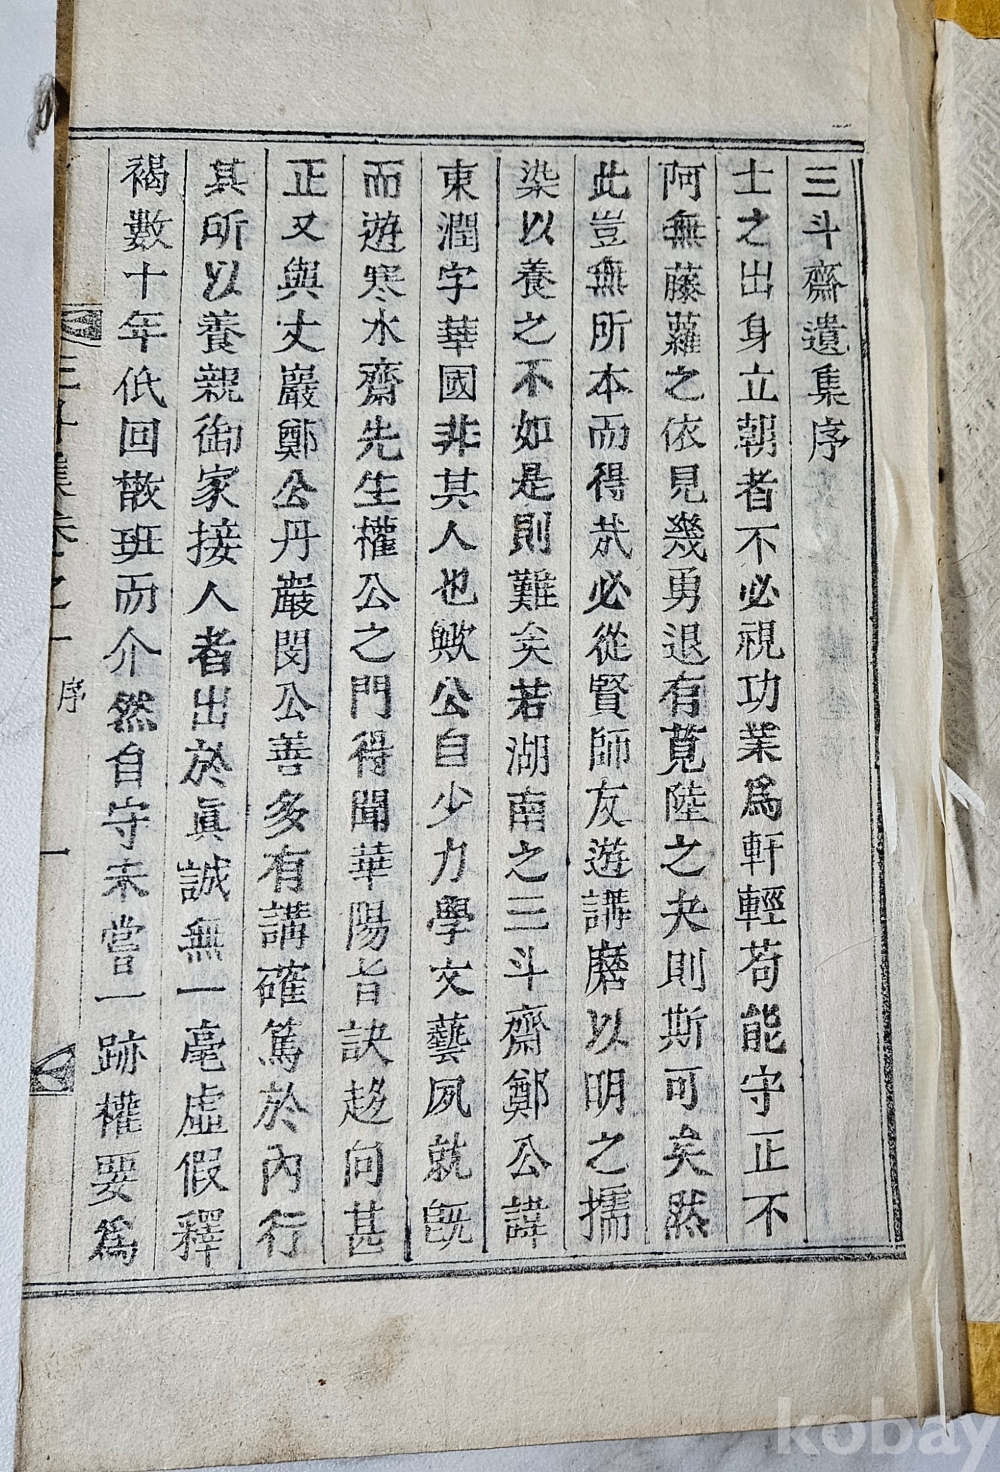 三斗齋遺集序
士之出身立朝者不必視功業爲軒輕苟能守正不
阿無藤蘿之依見幾勇退有莧陸之夬則斯可矣然
此豈無所本而得哉必從賢師友遊講磨以明之擩
染以養之不如是則難矣若湖南之三斗齋鄭公諱
東潤字華國非其人也歟公自少力學文藝夙就旣
而遊寒水齋先生權公之門得聞華陽旨訣趍向甚
正又與丈巖鄭公丹巖閔公善多有講確篤於內行
其所以養親御家接人者出於眞誠無一毫虛假釋
褐數十年低回散班而介然自守未嘗一跡權要爲
三斗集卷之一 序 一
kobay